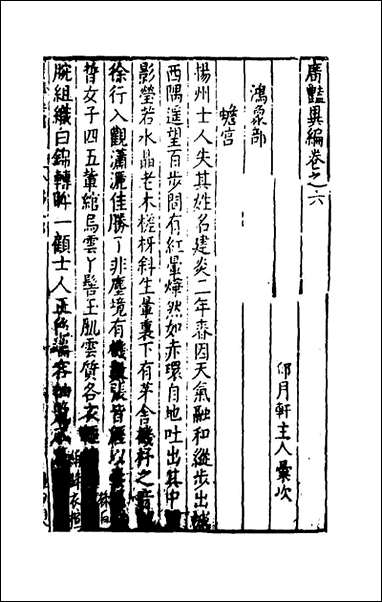 廣豔異編卷之六
印月軒主人彙次
鴻象部
蟾宮
揚州士人失其姓名建炎二年春因天氣融和縱步出城
西隅遥望百步間有紅暈燁然如赤環自地吐出其中
影瑩若水晶老木槎枒斜生暈裏下有茅舍機杼之音
徐行入觀瀟洒佳勝了非塵境有機數張皆經以
皙女子四五輩綰烏雲丫髻玉肌雲質各衣
腕組織白錦轉眄一顧士人正色